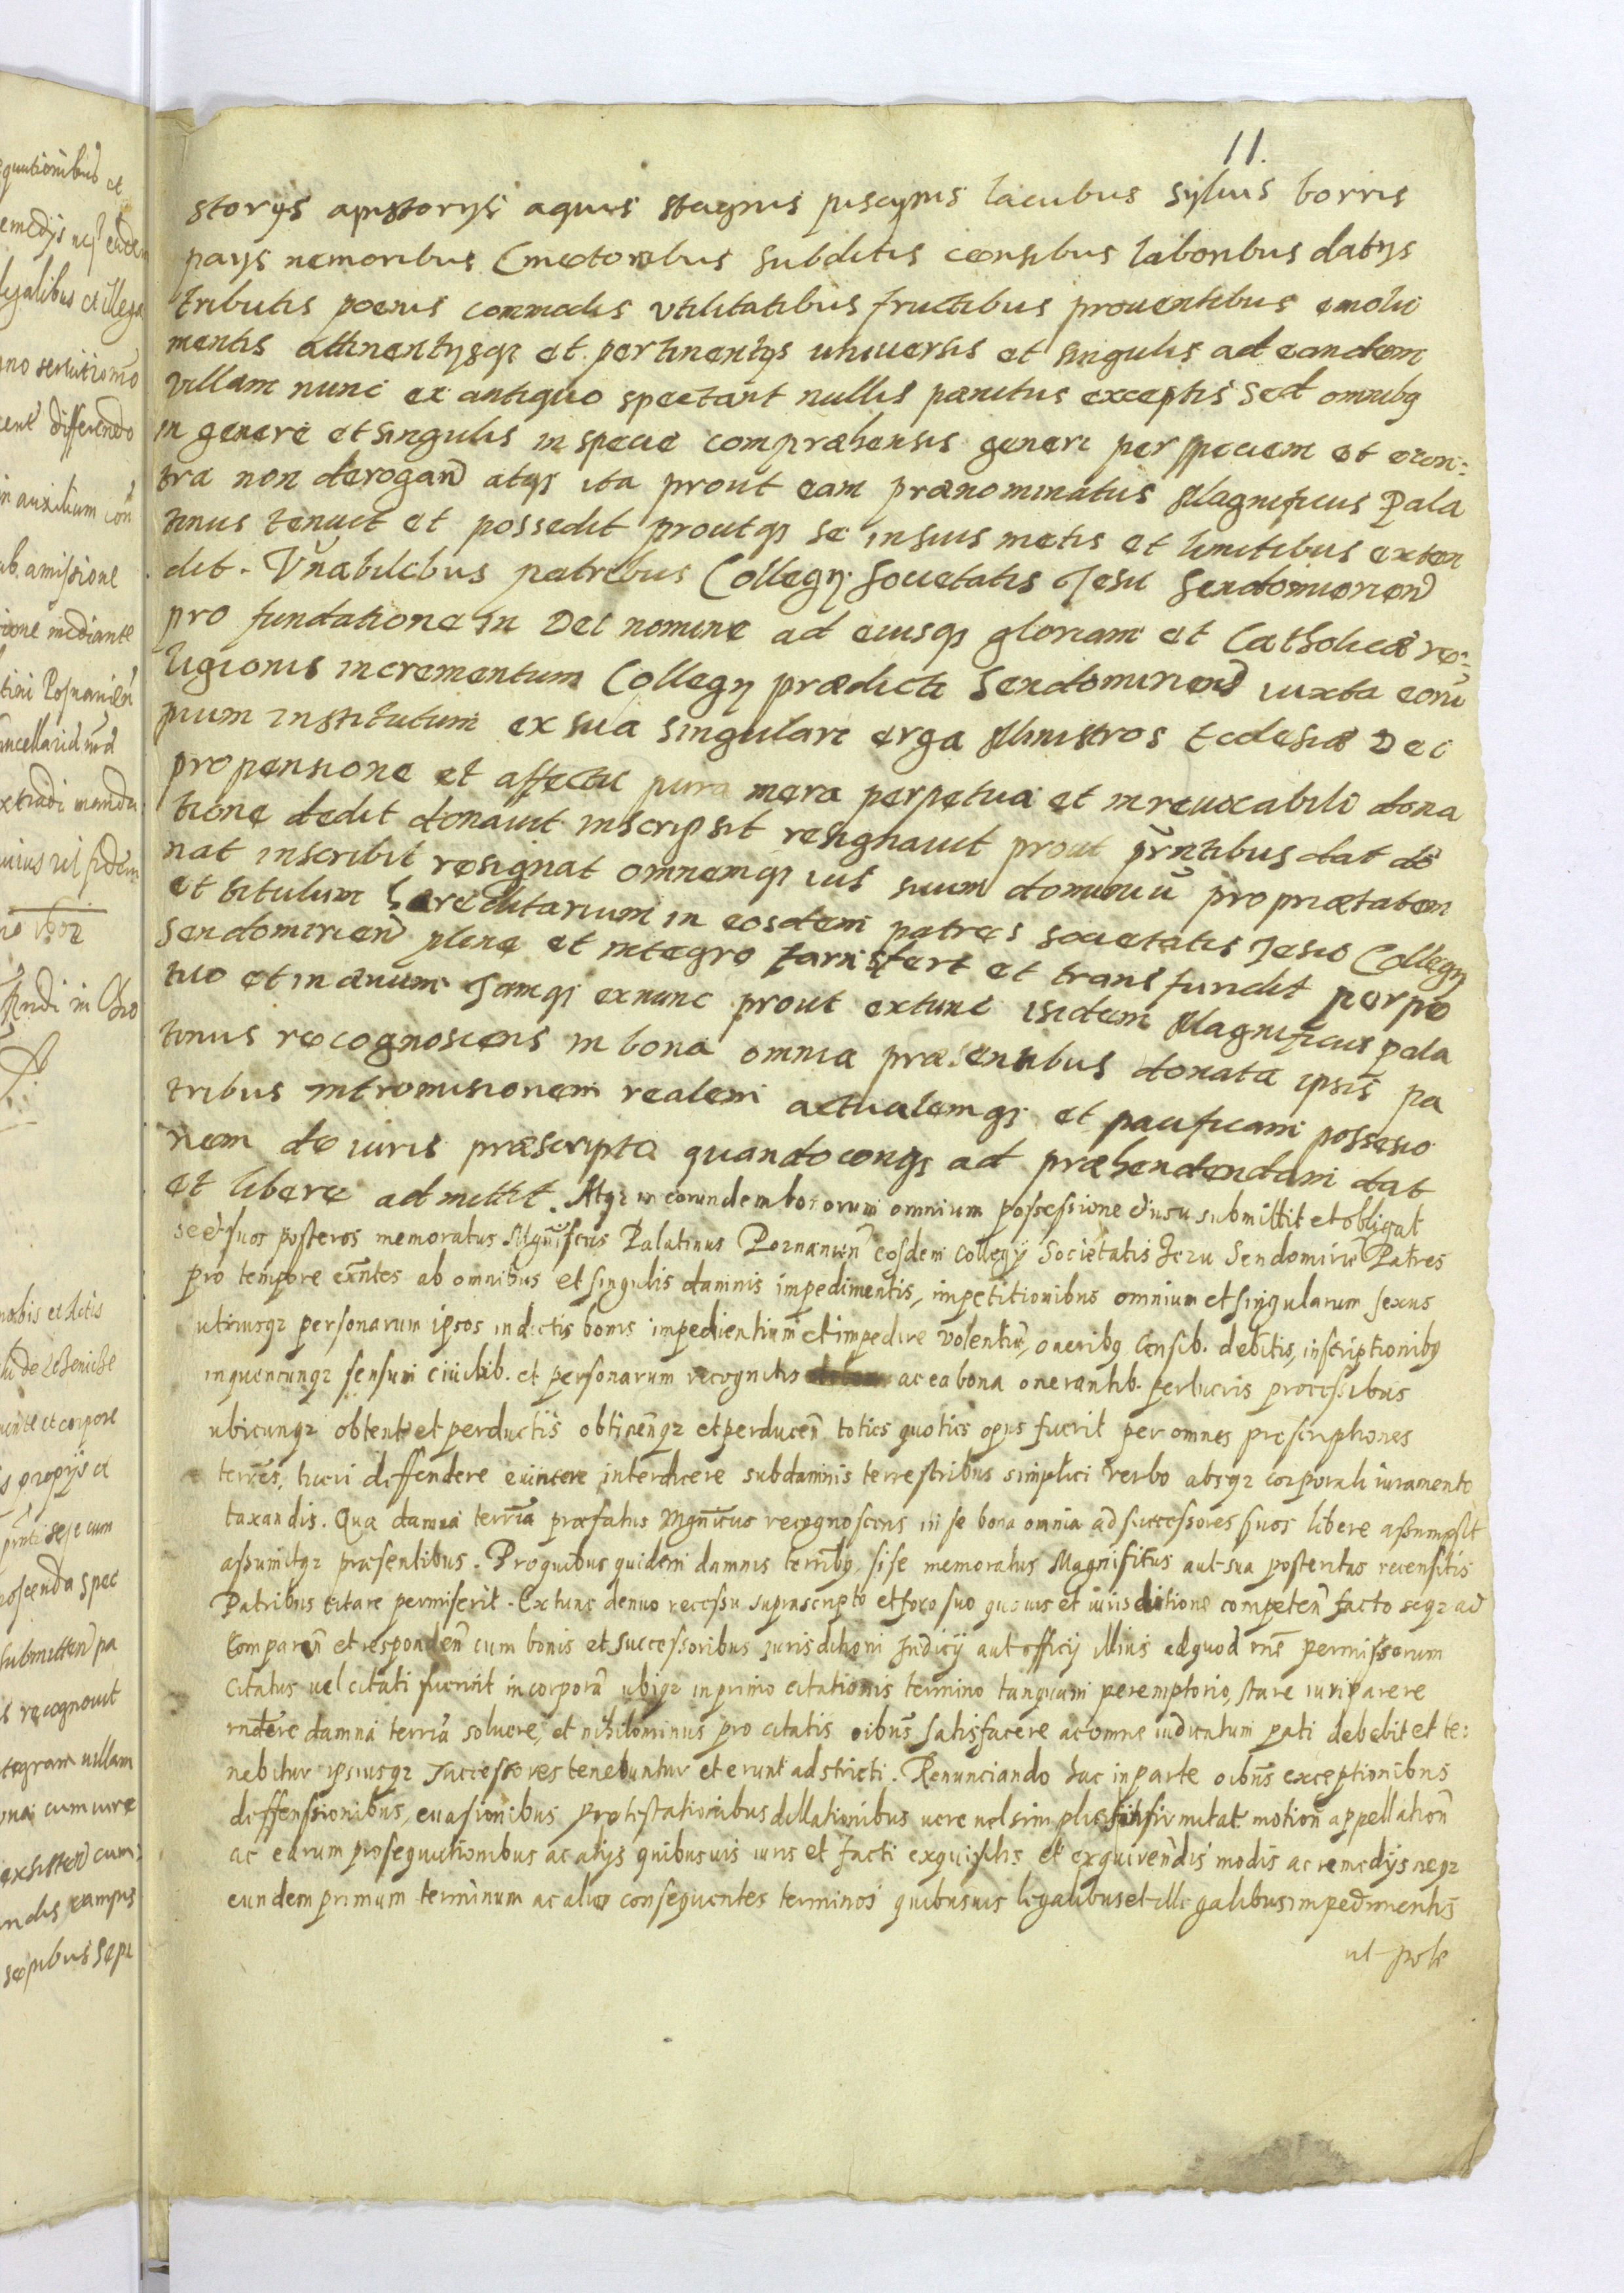 11.
storijs apistorijs aquis stagnis piscynis lacubus sylvis borris
pays nemoribus Cmetonibus subditis censibus laboribus datijs
tributis poenis commodis utilitatibus fructibus proventibus emolu
mentis attinentijsq₃ et pertinentijs universis et singulis ad eandem
villam nunc ex antiquo spectant nullis paenitus exceptis sed omnibq
in genere et singulis in specie compraehensis generi per speciem et econ:
tra non derogand atq₃ ita prout eam praenominatus Magnificus Pala
tinus tenuit et possedit proutq₃ se in suis metis et limitibus exten
dit. Vnabilibus patribus Collegij Societatis Jesu Sendomirien
pro fundatione in Dei nomine ad eiusq₃ gloriam et Catholicae re:
ligionis incrementum Collegij praedicti Sendomirien iuxta eorũ
pium institutum ex sua singulari erga Ministros Ecclesiae Dei
propensione et affectu pura mera perpetua et inrevocabili dona
tione dedit donavit inscripsit resignavit prout pr̃ntibus dat do
nat inscribit resignat omnemq₃ ius suum dominiũ propriaetatem
et titulum haereditarium in eosdem patres societatis Jesu Collegij
Sendomirien plene et integro tarnsfert et transfundit perpe
tuo et in aevum Jamq₃ ex nunc prout ex tunc isidem Magnificus pala
tinus recognoscens in bona omnia praesentibus donata ipsis pa
tribus intromisionem realem actualemq₃ et pacificam possesio
nem de iuris praescripto quandocunq₃ ad praehendendam dat
et libere admittit. Atq₃ in eorundem bonorum omnium possessione et usu submittit et obligat
se et suos posteros memoratus Mgnificus Palatinus Poznanien eosdem Collegij Societatis Jezu Sendomirien Patres
pro tempore exn̄tes ab omnibus et singulis damnis impedimentis, impetitionibus omnium et singularum sexus
utriusq₃ personarum ipsos in dictis bonis impedientium et impedire volentiũ, oneribq Censib. debitis, inscriptionibq
in quencunq₃ sensum civilib. et personarum recognitis ac ea bona onerantib. per lucris processibus
ubicunq₃ obtent et perductis obtinenq₃ et perducen toties quoties opus fuerit per omnes praescriptiones
terres, tueri deffendere evincere interdicere sub damnis terrestribus simplici verbo absq₃ corporali iuramento
taxandis. Qua damna terria praefatus Mgnicus recognoscens in se bona omnia ad successores suos libere assumpsit
assumitq₃ praesentibus. Pro quibus quidem damnis terribq, si se memoratus Magnificus aut sua posteritas recensitis
Patribus citare permiserit. Ex tunc denuo recessu suprascripto et foro suo quovis et iurisditione competen facto seq₃ ad
Comparen et responden cum bonis et successoribus iurisditioni Judicij aut officij illius ad quod rn̄e permissorum
citatus vel citati fuerint incorpora ubiq₃ in primo citationis termino tanquam peremptorio, stare iuri parere
rndere damna terria solvere, et nihilominus pro citatis oibus satisfacere ac omne iudicatum pati debebit et te:
nebitur ipsiusq₃ successores tenebuntur et erunt adstricti. Renunciando hac in parte oibus exceptionibus
deffenssionibus, evasionibus protestationibus dillationibus vere vel simplici infirmitat motion appellation
ac earum prosequutionibus ac alijs quibusvis iuris et facti exquisitis et exquirendis modis ac remedijs neq₃
eundem primum terminum ac alios consequentes terminos quibusvis legalibus et illegalibus impedimentis
ut pote